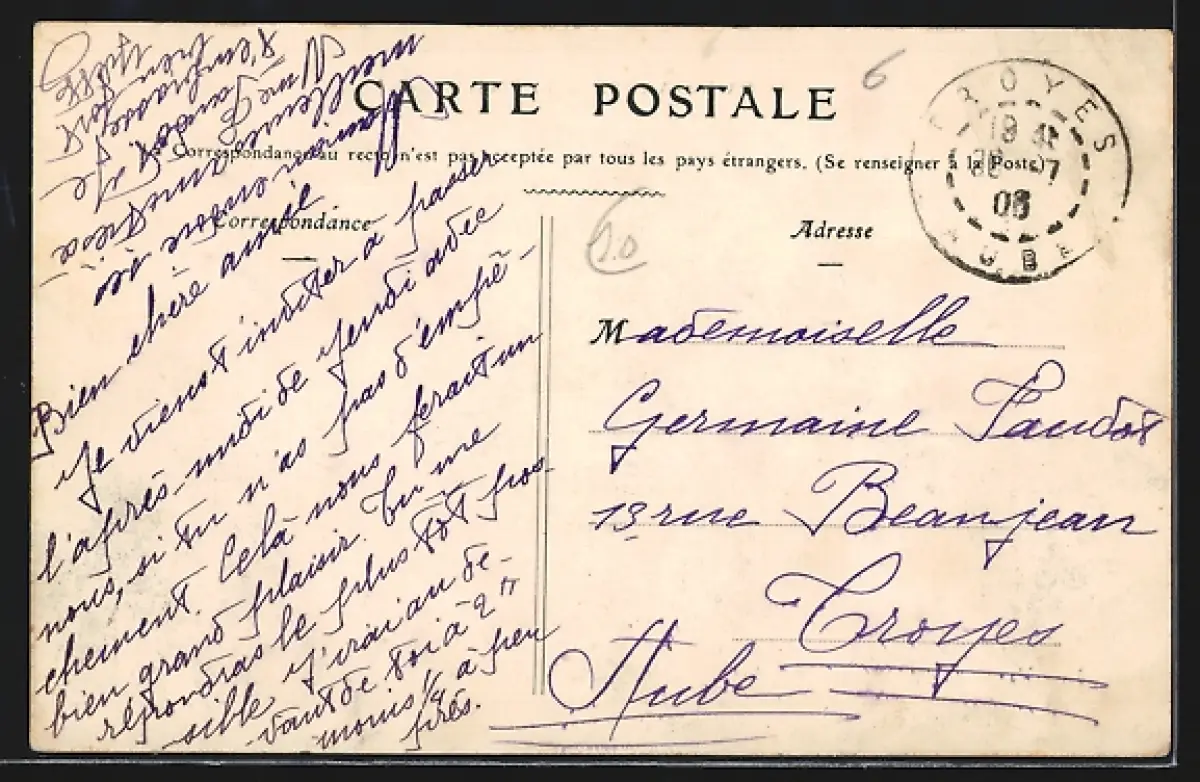 CARTE POSTALE
Correspondance au recto n'est pas acceptée par tous les pays étrangers. (Se renseigner à la Poste)
Correspondance
Adresse
TROYES
AUBE
6
Bien chère amie
Je viens t'inviter à passer
l'après-midi de jeudi avec
nous, si tu n'as pas d'empê-
chement. Celà nous ferait un
bien grand plaisir. Tu me
répondras le plus tôt pos-
sible. J'irai au de-
vant de toi à 2h
moins 1/4 à peu
près.
Mademoiselle
Germaine Paudot
13 rue Beaujean
Troyes
Aube